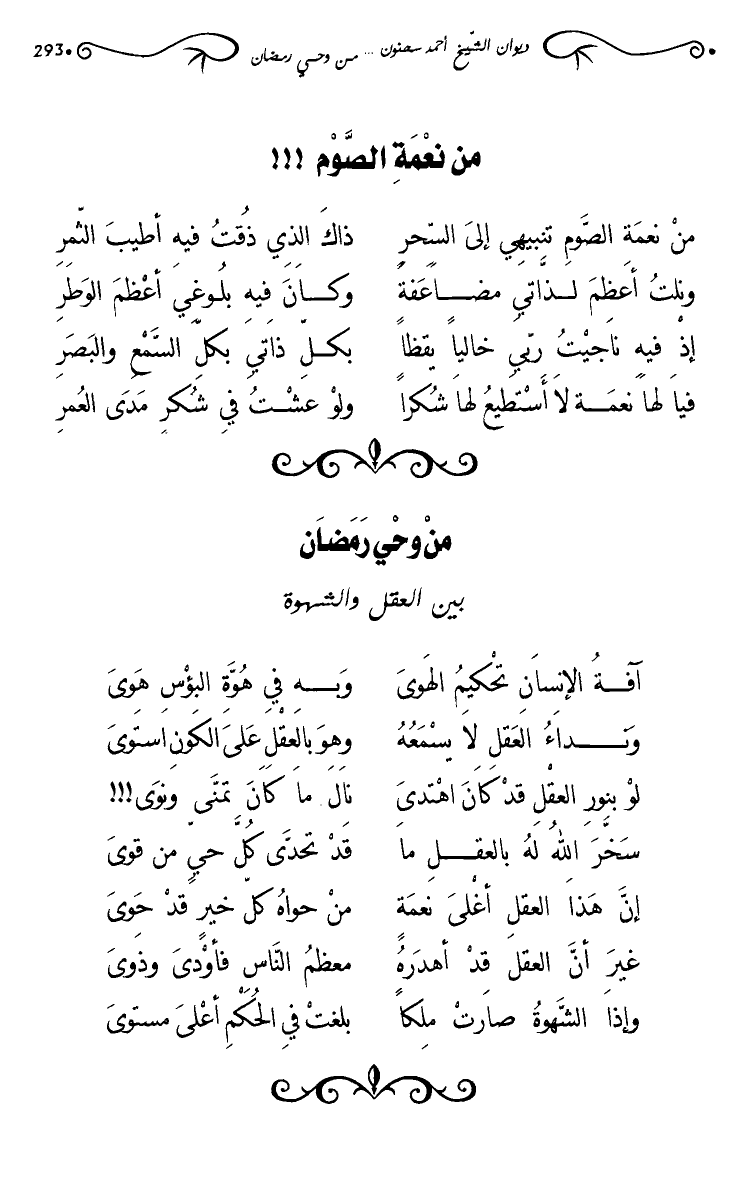 ديوان الشّيخ أحمد سحنون ... من وحي رمضان 293
من نعْمَةِ الصَّوْم !!!
منْ نعمَةِ الصَّومِ تنبيهِي إلىَ السّحرِ ذاكَ الذِي ذُقتُ فيهِ أطيبَ الثّمرِ
ونلتُ أعظمَ لـذّاتي مضـاعَفةً وكـانَ فيهِ بلُوغِي أعْظمَ الوَطَرِ
إذْ فيهِ ناجيْتُ ربّي خالياً يقظاً بكـلّ ذاتي بكلّ السَّمْعِ والبَصَرِ
فيا لهاَ نعمَـة لاَ أسْتطيعُ لهاَ شُكرا ولوْ عشْـتُ فيِ شُكرِ مَدَى العُمرِ
منْ وحْيِ رَمَضاَن
بين العقل والشهوة
آفـةُ الإنسانِ تحْكيمُ الهَوىَ وَبـهِ فيِ هُوَّةِ البؤْسِ هَوىَ
وَنـداءُ العَقلِ لاَ يسْمَعُهُ وهوَ بالعقْلِ عَلىَ الكونِ استوَى
لوْ بنورِ العقْلِ قدْ كانَ اهْتدىَ نالَ ماَ كانَ تمنَّى ونوَى!!!
سَخّرَ اللهُ لهُ بالعقـلِ ماَ قدْ تحدَّى كلَّ حيّ من قوىَ
إنَّ هَذا العقلَ أغْلىَ نعمَةٍ منْ حواهُ كلّ خيرٍ قدْ حَوىَ
غيرَ أنَّ العقلَ قدْ أهدَرهُ معظمُ النَّاسِ فأوْدىَ وذوىَ
وإذا الشَّهوةُ صارتْ ملكاً بلغتْ فيِ الحُكْمِ أعْلىَ مستوىَ